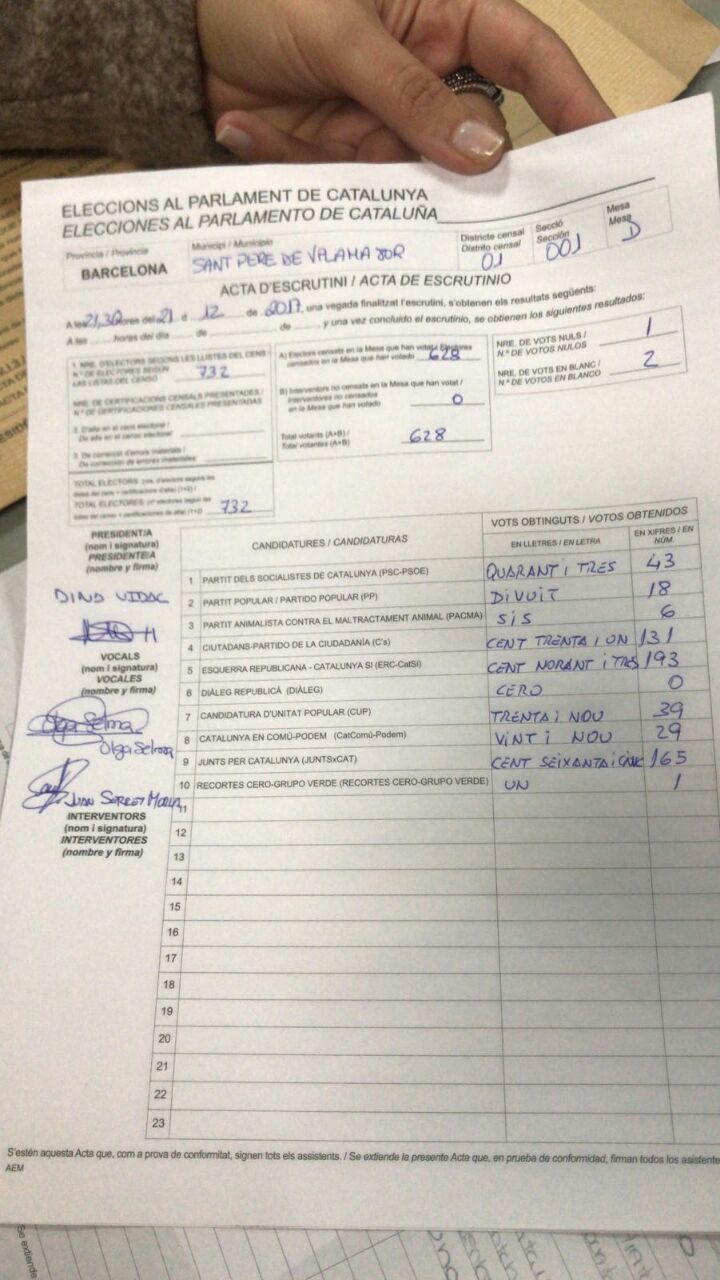 ELECCIONS AL PARLAMENT DE CATALUNYA
ELECCIONES AL PARLAMENTO DE CATALUÑA
Província / Provincia
BARCELONA
Municipi / Municipio
SANT PERE DE VILAMAJOR
Districte censal
Distrito censal
01
Secció
Sección
001
Mesa
Mesa
D
ACTA D'ESCRUTINI / ACTA DE ESCRUTINIO
A les 21,30 hores del 21 d 12 de 2017, una vegada finalitzat l'escrutini, s'obtenen els resultats següents:
A las ........ horas del día ...... de ........ de ........ y una vez concluido el escrutinio, se obtienen los siguientes resultados:
1. NRE. D'ELECTORS SEGONS LES LLISTES DEL CENS
N.º DE ELECTORES SEGÚN
LAS LISTAS DEL CENSO 732
NRE. DE CERTIFICACIONS CENSALS PRESENTADES /
N.º DE CERTIFICACIONES CENSALES PRESENTADAS
2. D'alta en el cens electoral /
De alta en el censo electoral
3. De correcció d'errors materials /
De corrección de errores materiales
TOTAL ELECTORS
TOTAL ELECTORES 732
A) Electors censats en la Mesa que han votat / Electores
censados en la Mesa que han votado 628
B) Interventors no censats en la Mesa que han votat /
Interventores no censados
en la Mesa que han votado 0
Total votants (A+B) /
Total votantes (A+B) 628
NRE. DE VOTS NULS /
N.º DE VOTOS NULOS 1
NRE. DE VOTS EN BLANC /
N.º DE VOTOS EN BLANCO 2
PRESIDENT/A
(nom i signatura)
PRESIDENTE/A
(nombre y firma)
VOCALS
(nom i signatura)
VOCALES
(nombre y firma)
Olga Selma
Olga Selma
INTERVENTORS
(nom i signatura)
INTERVENTORES
(nombre y firma)
CANDIDATURES / CANDIDATURAS
VOTS OBTINGUTS / VOTOS OBTENIDOS
EN LLETRES / EN LETRA
EN XIFRES / EN NÚM.
1 PARTIT DELS SOCIALISTES DE CATALUNYA (PSC-PSOE) QUARANT I TRES 43
2 PARTIT POPULAR / PARTIDO POPULAR (PP) DIVUIT 18
3 PARTIT ANIMALISTA CONTRA EL MALTRACTAMENT ANIMAL (PACMA) SIS 6
4 CIUTADANS-PARTIDO DE LA CIUDADANÍA (C's) CENT TRENTA I UN 131
5 ESQUERRA REPUBLICANA - CATALUNYA SÍ (ERC-CatSí) CENT NORANT I TRES 193
6 DIÀLEG REPUBLICÀ (DIÀLEG) CERO 0
7 CANDIDATURA D'UNITAT POPULAR (CUP) TRENTA I NOU 39
8 CATALUNYA EN COMÚ-PODEM (CatComú-Podem) VINT I NOU 29
9 JUNTS PER CATALUNYA (JUNTSxCAT) CENT SEIXANTA I CINC 165
10 RECORTES CERO-GRUPO VERDE (RECORTES CERO-GRUPO VERDE) UN 1
11
12
13
14
15
16
17
18
19
20
21
22
23
S'estén aquesta Acta que, com a prova de conformitat, signen tots els assistents. / Se extiende la presente Acta que, en prueba de conformidad, firman todos los asistente
AEM